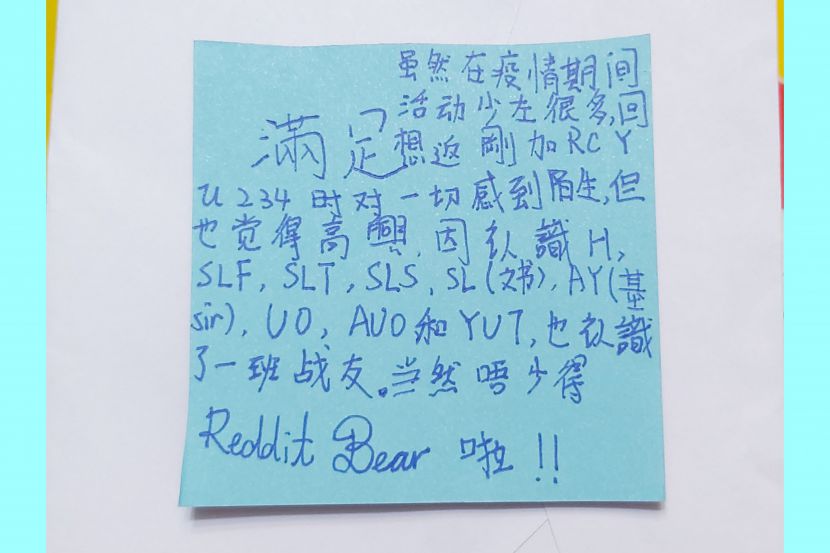 满足
虽然在疫情期间
活动少左很多,回
想返 剛加RCY
U234 时对一切感到陌生,但
也觉得高興,因认識H,
SLF, SLT, SLS, SL(文书), AY(基
sir), UO, AUO和YUT,也认識
了一班战友。当然唔少得
Reddit Bear 啦!!